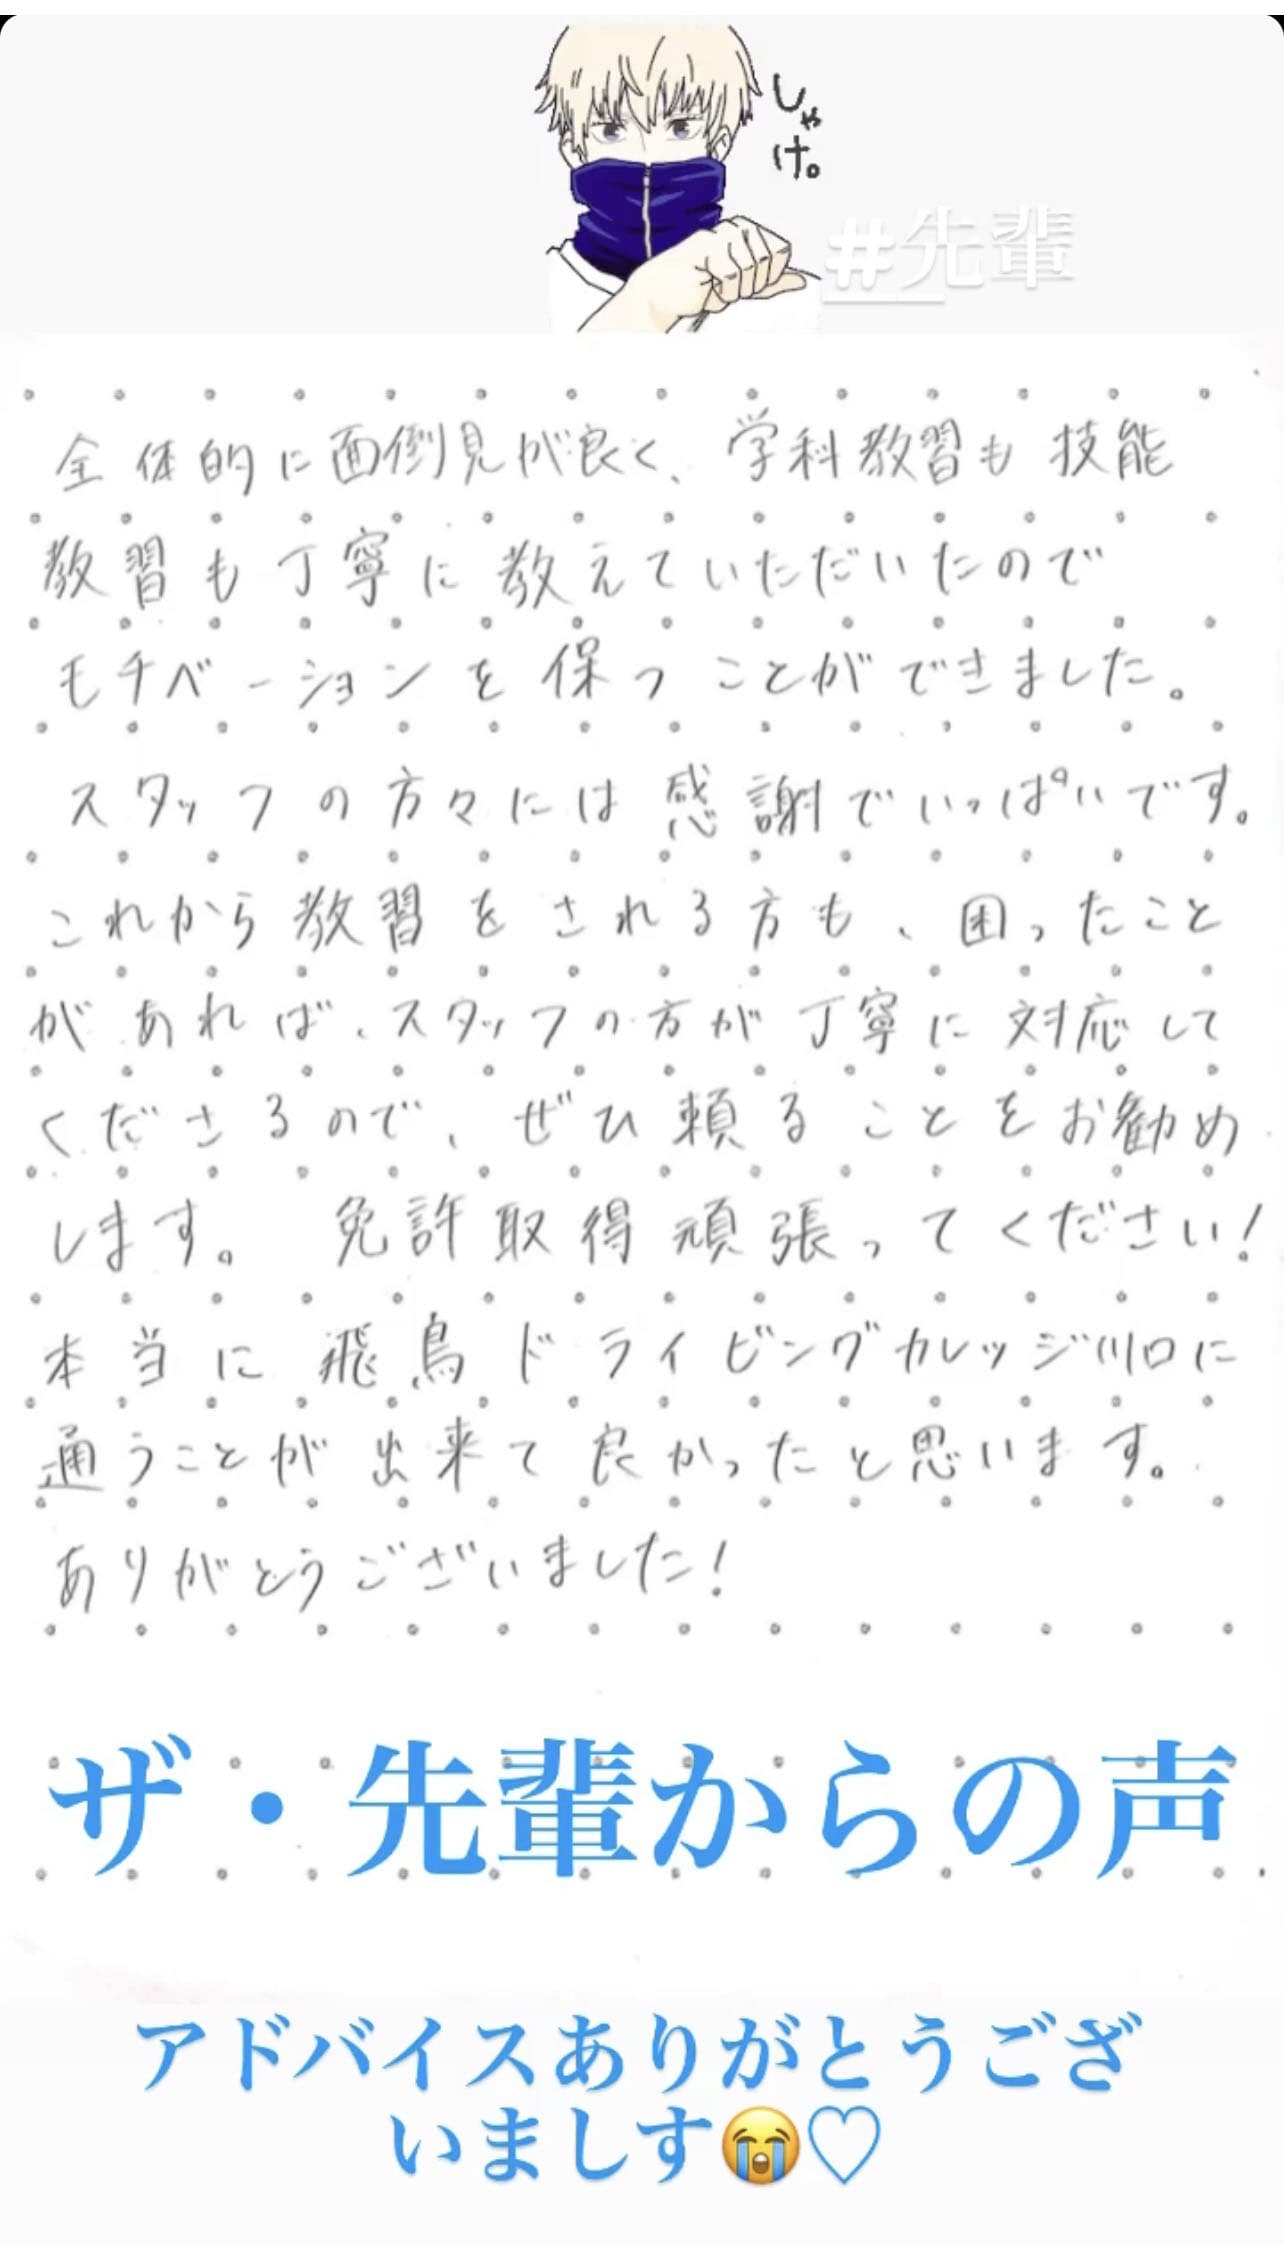 しゃ
け。
#先輩
全体的に面倒見が良く、学科教習も技能
教習も丁寧に教えていただいたので
モチベーションを保つことができました。
スタッフの方々には感謝でいっぱいです。
これから教習をされる方も、困ったこと
があれば、スタッフの方が丁寧に対応して
くださるので、ぜひ頼ることをお勧め
します。 免許取得頑張ってください!
本当に飛鳥ドライビングカレッジ川口に
通うことが出来て良かったと思います。
ありがとうございました!
ザ・先輩からの声
アドバイスありがとうござ
いましす😭♡